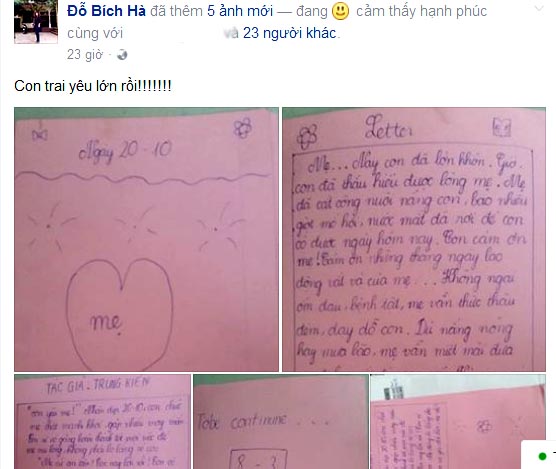 Đỗ Bích Hà đã thêm 5 ảnh mới — đang cảm thấy hạnh phúc
cùng với và 23 người khác.
23 giờ ·
Con trai yêu lớn rồi!!!!!!!
Ngày 20-10
mẹ
Letter
Mẹ... Nay con đã lớn khôn. Giờ
con đã thấu hiểu được lòng mẹ. Mẹ
đã cất công nuôi nấng con, bao nhiêu
giọt mồ hôi, nước mắt đã rơi để con
có được ngày hôm nay. Con cảm ơn
mẹ! Cảm ơn những tháng ngày lao
động vất vả của mẹ... Không ngại
ốm đau, bệnh tật, mẹ vẫn thức thâu
đêm, dạy dỗ con. Dù nắng nóng
hay mưa bão, mẹ vẫn miệt mài đưa
TÁC GIẢ: TRUNG KIÊN
"Con yêu mẹ!" Nhân dịp 20-10, con chúc
mẹ thật mạnh khỏe, gặp nhiều may mắn
Tobe continune...
8 - 3